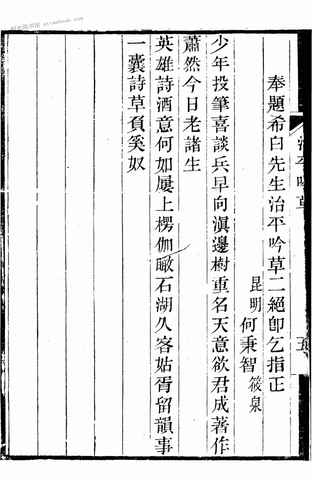 治平吟草
五
奉題希白先生治平吟草二絕卽乞指正
昆明何秉智筱泉
少年投筆喜談兵早向滇邊樹重名天意欲君成著作
蕭然今日老諸生
英雄詩酒意何如屢上楞伽瞰石湖久客姑胥留韻事
一囊詩草負奚奴